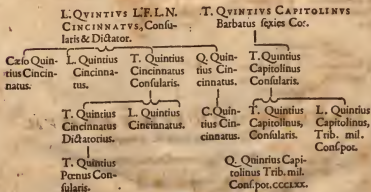 L. QVINTIVS L.F. L.N.
CINCINNATVS, Consu-
laris & Dictator.
.T. QVINTIVS CAPITOLINVS
Barbatus sexies Cos.
Cæso Quin-
tius Cincin-
natus.
L. Quintius
Cincinna-
tus.
T. Quintius
Cincinnatus
Consularis.
Q. Quin-
tius Cin-
cinnatus.
T. Quintius
Capitolinus
Consularis.
T. Quintius
Cincinnatus
Dictatorius.
L. Quintius
Cincinnatus.
C. Quin-
tius Cin-
cinnatus.
T. Quintius
Capitolinus,
Consularis.
L. Quintius
Capitolinus,
Trib. mil.
Cons. pot.
T. Quintius
Pœnus Con-
sularis.
Q. Quinrius Capi-
tolinus Trib. mil.
Cons. pot. CCCLXX.